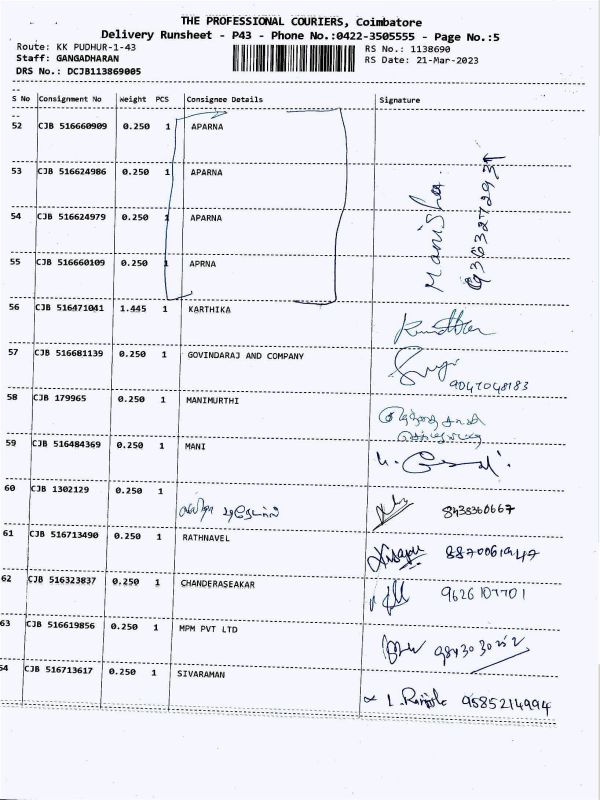 THE PROFESSIONAL COURIERS, Coimbatore
Delivery Runsheet - P43 - Phone No.:0422-3505555 - Page No.:5
Route: KK PUDHUR-1-43 RS No.: 1138690
Staff: GANGADHARAN RS Date: 21-Mar-2023
DRS No.: DCJB113869005
S No Consignment No Weight PCS Consignee Details Signature
52 CJB 516660909 0.250 1 APARNA
53 CJB 516624986 0.250 1 APARNA
54 CJB 516624979 0.250 1 APARNA
55 CJB 516660109 0.250 1 APRNA
Manisha
56 CJB 516471041 1.445 1 KARTHIKA
57 CJB 516681139 0.250 1 GOVINDARAJ AND COMPANY
9047048183
58 CJB 179965 0.250 1 MANIMURTHI
59 CJB 516484369 0.250 1 MANI
60 CJB 1302129 0.250 1
8438360667
61 CJB 516713490 0.250 1 RATHNAVEL
8870061947
62 CJB 516323837 0.250 1 CHANDERASEAKAR
9626107701
63 CJB 516619856 0.250 1 MPM PVT LTD
9843030252
64 CJB 516713617 0.250 1 SIVARAMAN
9585214994